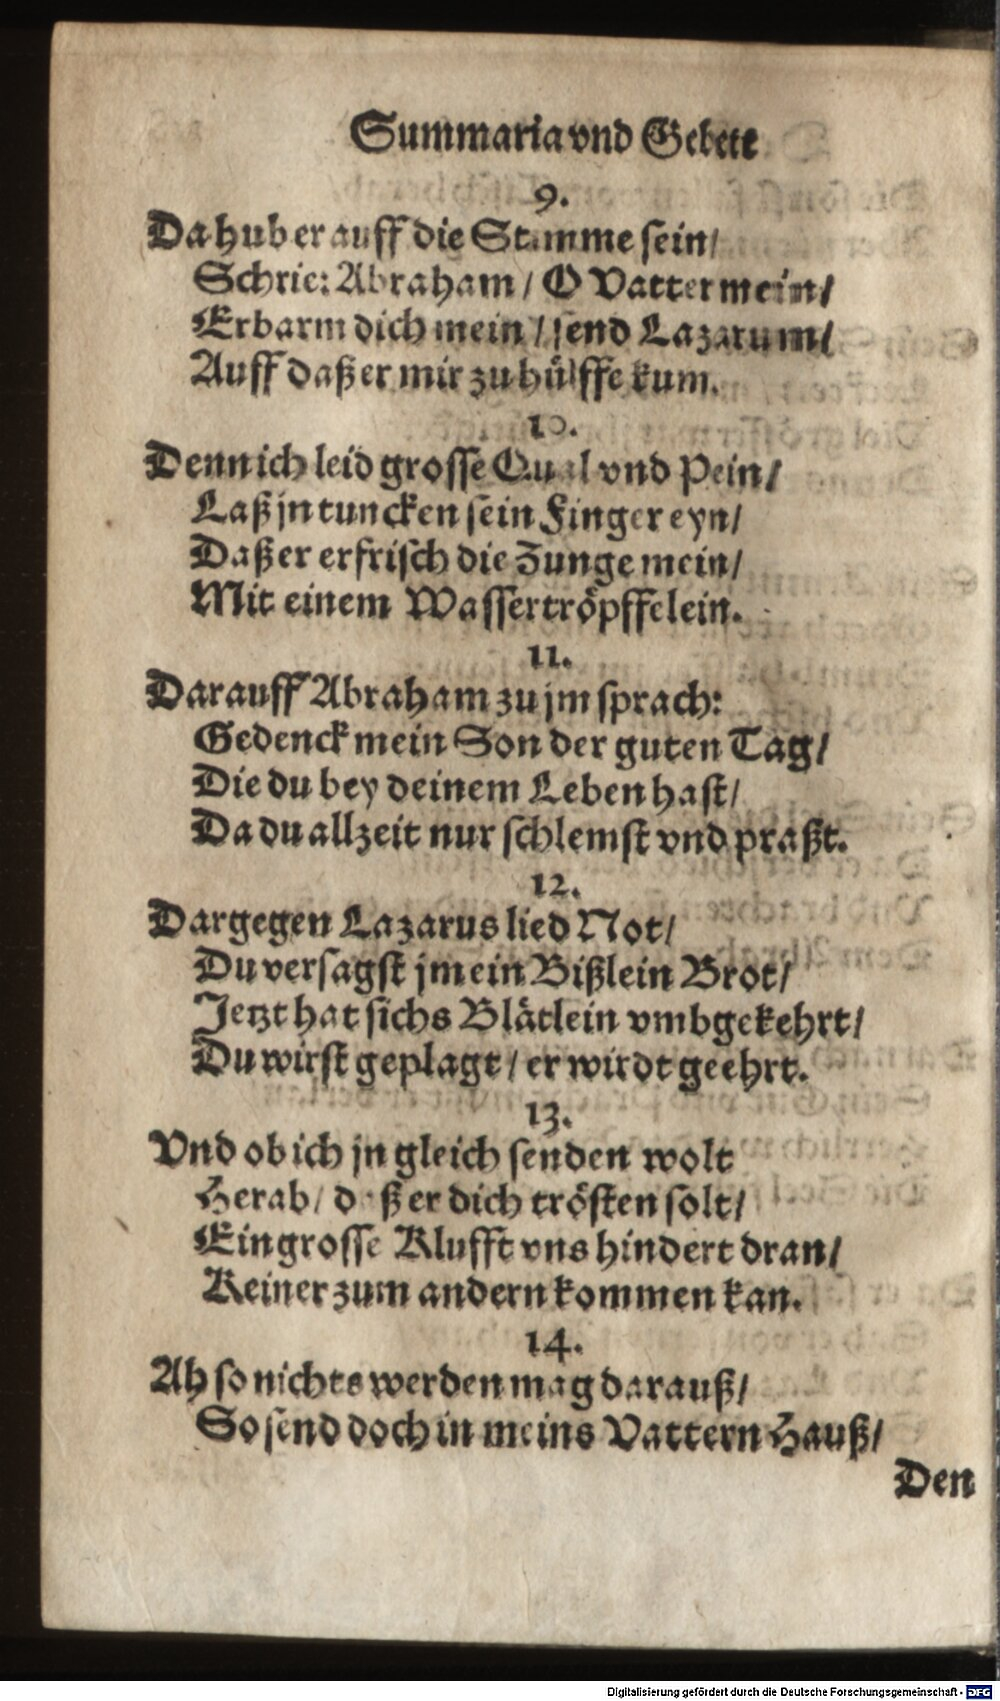 Summaria vnd Gebete
9.
Da hub er auff die Stimme sein/
Schrie: Abraham / O Vatter mein/
Erbarm dich mein / send Lazarum/
Auff daß er mir zu hülffe kum.
10.
Denn ich leid grosse Qual vnd Pein/
Laß jn tuncken sein Finger eyn/
Daß er erfrisch die Zunge mein/
Mit einem Wassertröpffelein.
11.
Darauff Abraham zu jm sprach:
Gedenck mein Son der guten Tag/
Die du bey deinem Leben hast/
Da du allzeit nur schlemst vnd praßt.
12.
Dargegen Lazarus lied Not/
Du versagst jm ein Bißlein Brot/
Jetzt hat sichs Blätlein vmbgekehrt/
Du wirst geplagt / er wirdt geehrt.
13.
Vnd ob ich jn gleich senden wolt
Herab / daß er dich trösten solt/
Ein grosse Klufft vns hindert dran/
Keiner zum andern kommen kan.
14.
Ah so nichts werden mag darauß/
So send doch in meins Vattern Hauß/
Den
Digitalisierung gefördert durch die Deutsche Forschungsgemeinschaft - DFG